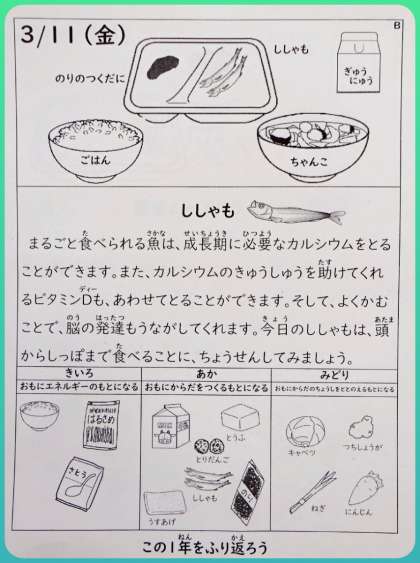 B
3/11(金)
ししゃも
のりのつくだに
ぎゅう
にゅう
ごはん
ちゃんこ
ししゃも
まるごと食べられる魚は、成長期に必要なカルシウムをとる
ことができます。また、カルシウムのきゅうしゅうを助けてくれ
るビタミンDも、あわせてとることができます。そして、よくかむ
ことで、脳の発達もうながしてくれます。今日のししゃもは、頭
からしっぽまで食べることに、ちょうせんしてみましょう。
きいろ
あか
みどり
おもにエネルギーのもとになる
おもにからだをつくるもとになる
おもにからだのちょうしをととのえるもとになる
はるさめ
さとう
とうふ
とりだんご
ししゃも
のり
うすあげ
キャベツ
つちしょうが
ねぎ
にんじん
この1年をふり返ろう